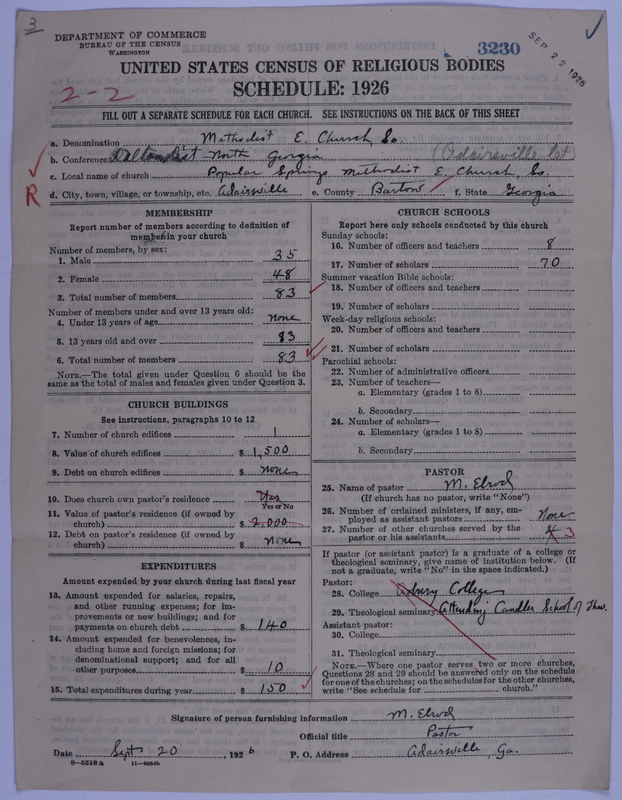 3
DEPARTMENT OF COMMERCE
BUREAU OF THE CENSUS
WASHINGTON
3230
SEP 22 1926
UNITED STATES CENSUS OF RELIGIOUS BODIES
SCHEDULE: 1926
2-2
FILL OUT A SEPARATE SCHEDULE FOR EACH CHURCH. SEE INSTRUCTIONS ON THE BACK OF THIS SHEET
a. Denomination Methodist E. Church, So.
b. Conference Dalton Dist North Georgia (Adairsville Ct)
c. Local name of church Popular Springs Methodist E. Church, So.
R
d. City, town, village, or township, etc. Adairsville e. County Bartow f. State Georgia
MEMBERSHIP
Report number of members according to definition of member in your church
Number of members, by sex:
1. Male 35
2. Female 48
3. Total number of members 83
Number of members under and over 13 years old:
4. Under 13 years of age none
5. 13 years old and over 83
6. Total number of members 83
NOTE.—The total given under Question 6 should be the
same as the total of males and females given under Question 3.
CHURCH BUILDINGS
See instructions, paragraphs 10 to 12
7. Number of church edifices 1
8. Value of church edifices $ 1,500
9. Debt on church edifices $ none
10. Does church own pastor's residence Yes
Yes or No
11. Value of pastor's residence (if owned by
church) $ 2,000
12. Debt on pastor's residence (if owned by
church) $ none
EXPENDITURES
Amount expended by your church during last fiscal year
13. Amount expended for salaries, repairs,
and other running expenses; for im-
provements or new buildings; and for
payments on church debt $ 140
14. Amount expended for benevolences, in-
cluding home and foreign missions; for
denominational support; and for all
other purposes $ 10
15. Total expenditures during year $ 150
CHURCH SCHOOLS
Report here only schools conducted by this church
Sunday schools:
16. Number of officers and teachers 8
17. Number of scholars 70
Summer vacation Bible schools:
18. Number of officers and teachers
19. Number of scholars
Week-day religious schools:
20. Number of officers and teachers
21. Number of scholars
Parochial schools:
22. Number of administrative officers
23. Number of teachers—
a. Elementary (grades 1 to 8)
b. Secondary
24. Number of scholars—
a. Elementary (grades 1 to 8)
b. Secondary
PASTOR
25. Name of pastor M. Elrod
(If church has no pastor, write "None")
26. Number of ordained ministers, if any, em-
ployed as assistant pastors None
27. Number of other churches served by the
pastor or his assistants 4 3
If pastor (or assistant pastor) is a graduate of a college or
theological seminary, give name of institution below. (If
not a graduate, write "No" in the space indicated.)
Pastor:
28. College Asbury College
29. Theological seminary Attending Candler School of Theo.
Assistant pastor:
30. College
31. Theological seminary
NOTE.—Where one pastor serves two or more churches,
Questions 28 and 29 should be answered only on the schedule
for one of the churches; on the schedules for the other churches,
write "See schedule for church."
Signature of person furnishing information M. Elrod
Official title Pastor
Date Sept 20, 1926 P. O. Address Adairsville, Ga.
8-5518a 11-9024b